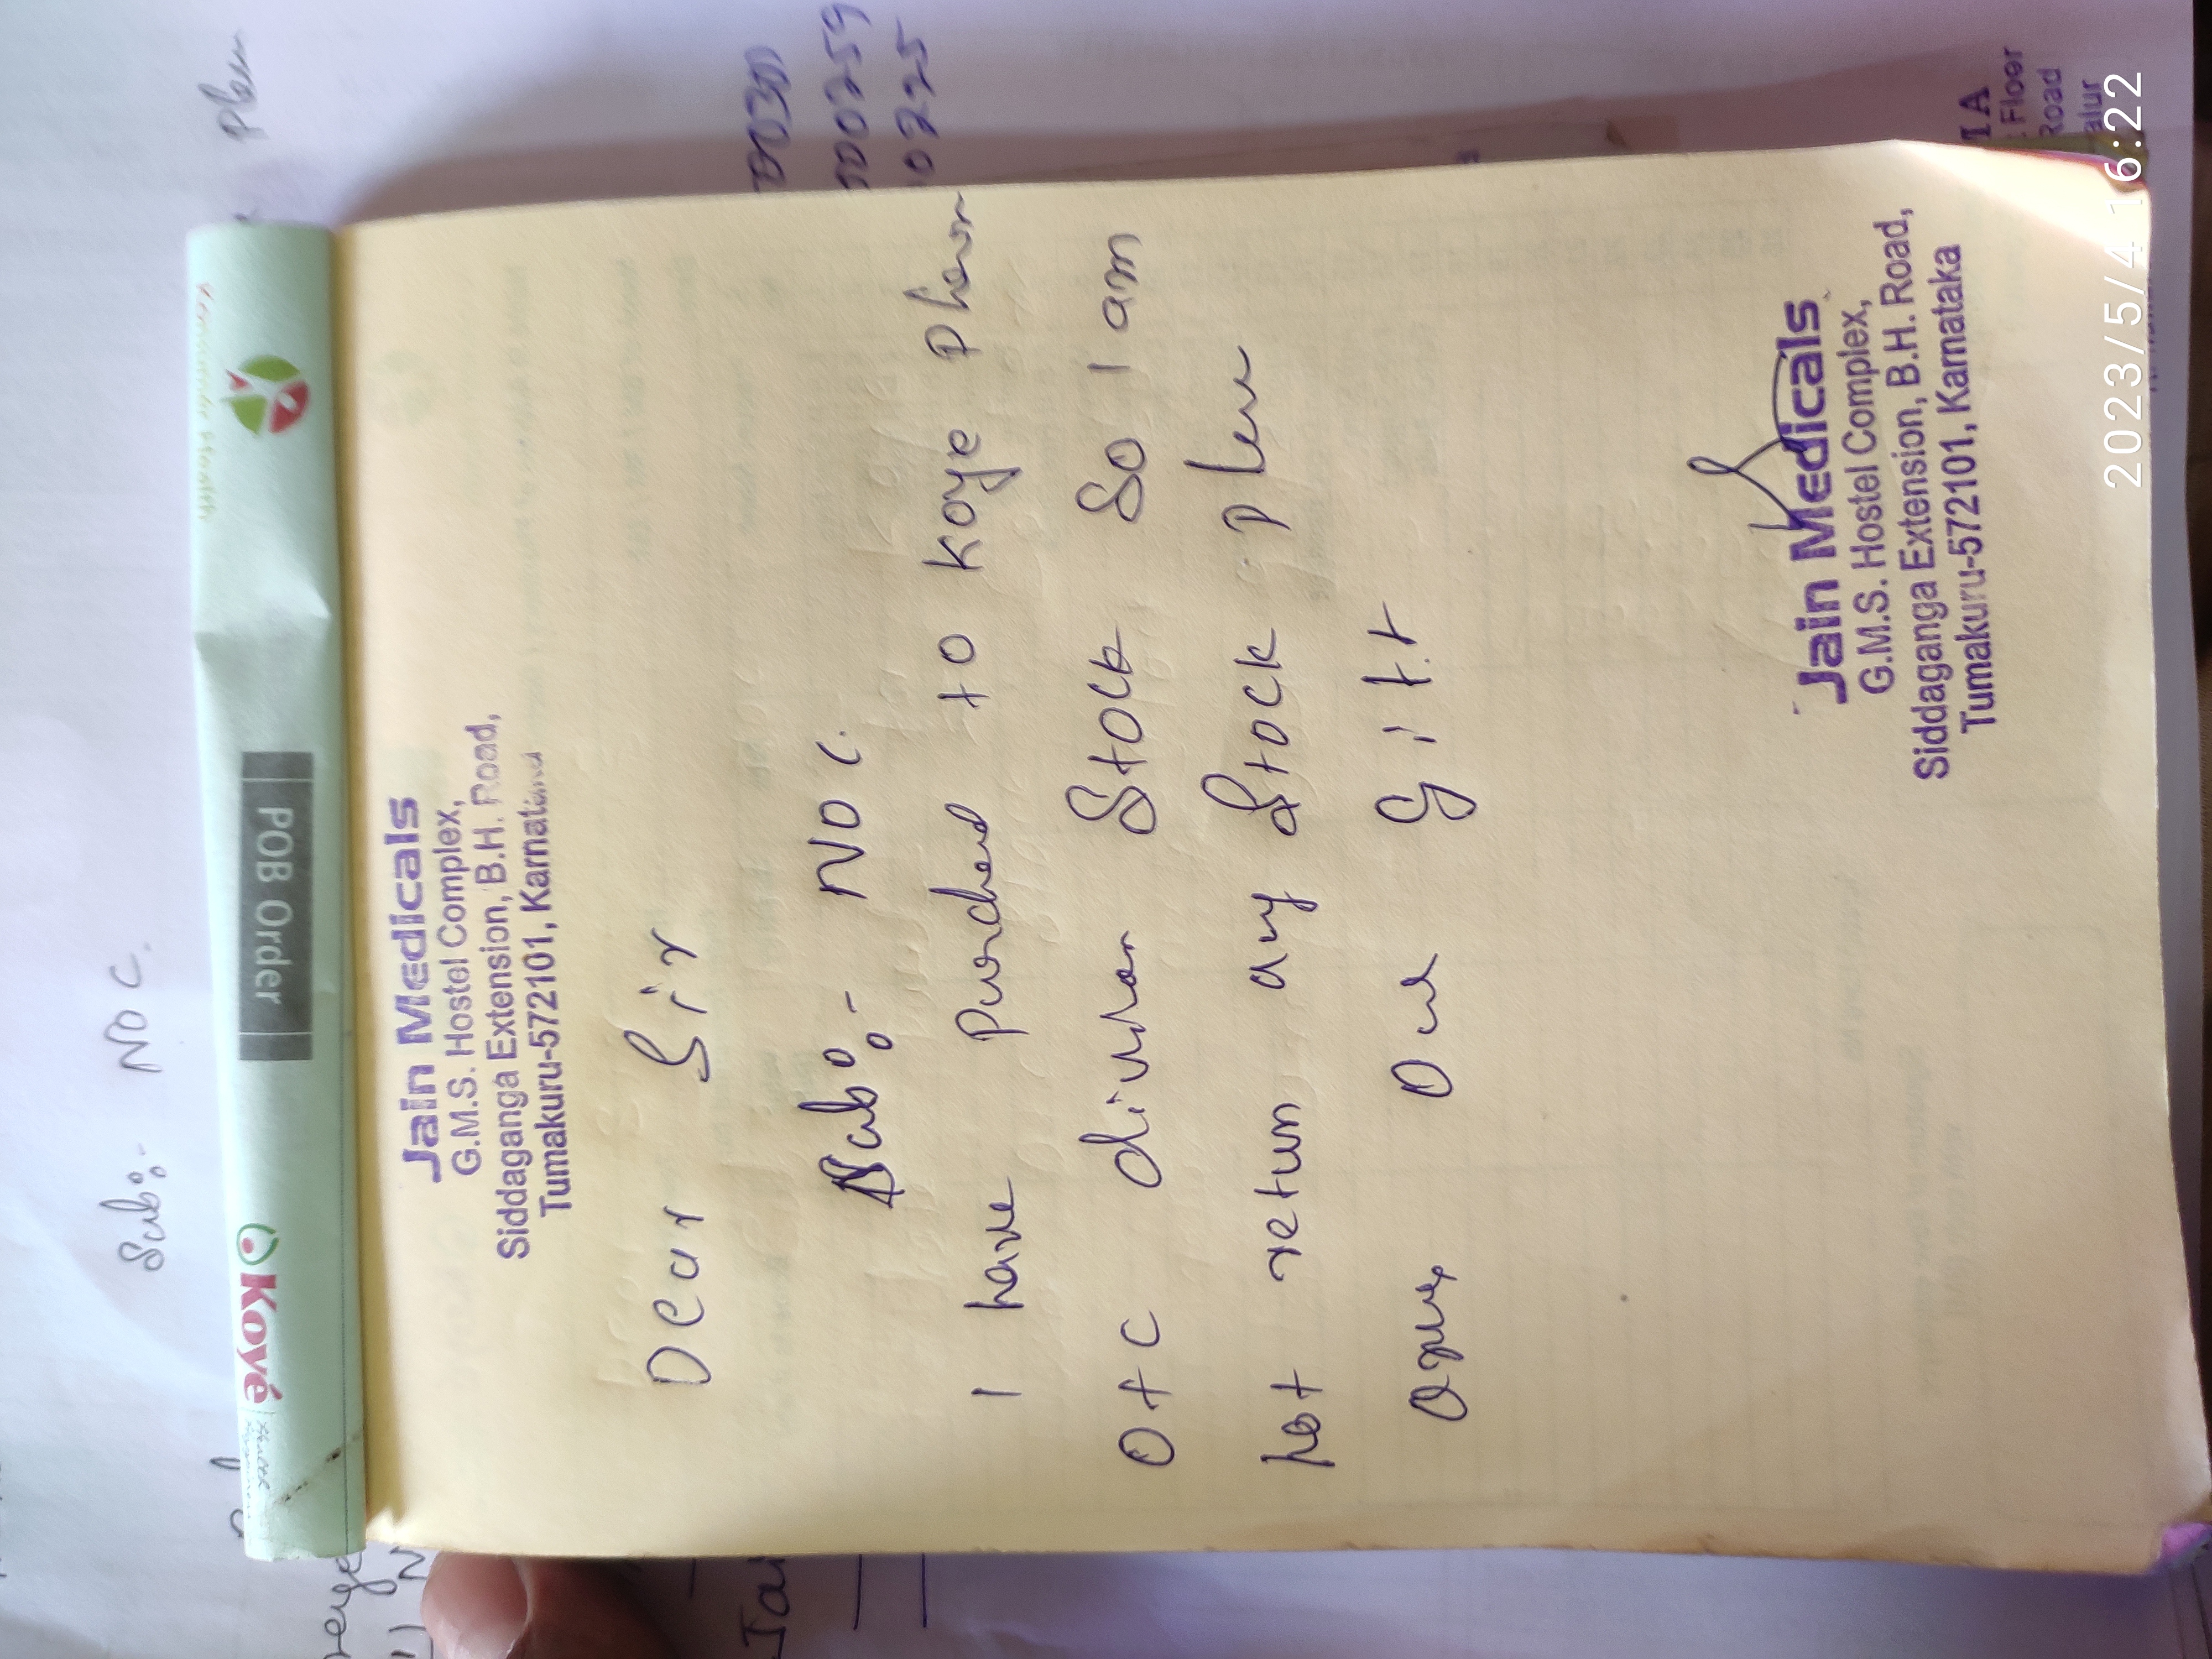 Sub:- NOC.
Plem
Koyé
POB Order
Jain Medicals
G.M.S. Hostel Complex,
Siddaganga Extension, B.H. Road,
Tumakuru-572101,
Dear Sir
Sub:- NOC.
I have Purched to Koye Pharm
OTC division Stock So I am
not return any Stock. Plem
and Gift
Jain Medicals
G.M.S. Hostel Complex,
Siddaganga Extension, B.H. Road,
Tumakuru-572101, Karnataka
00259
0225
Floor
Road
2023/5/4 16:22